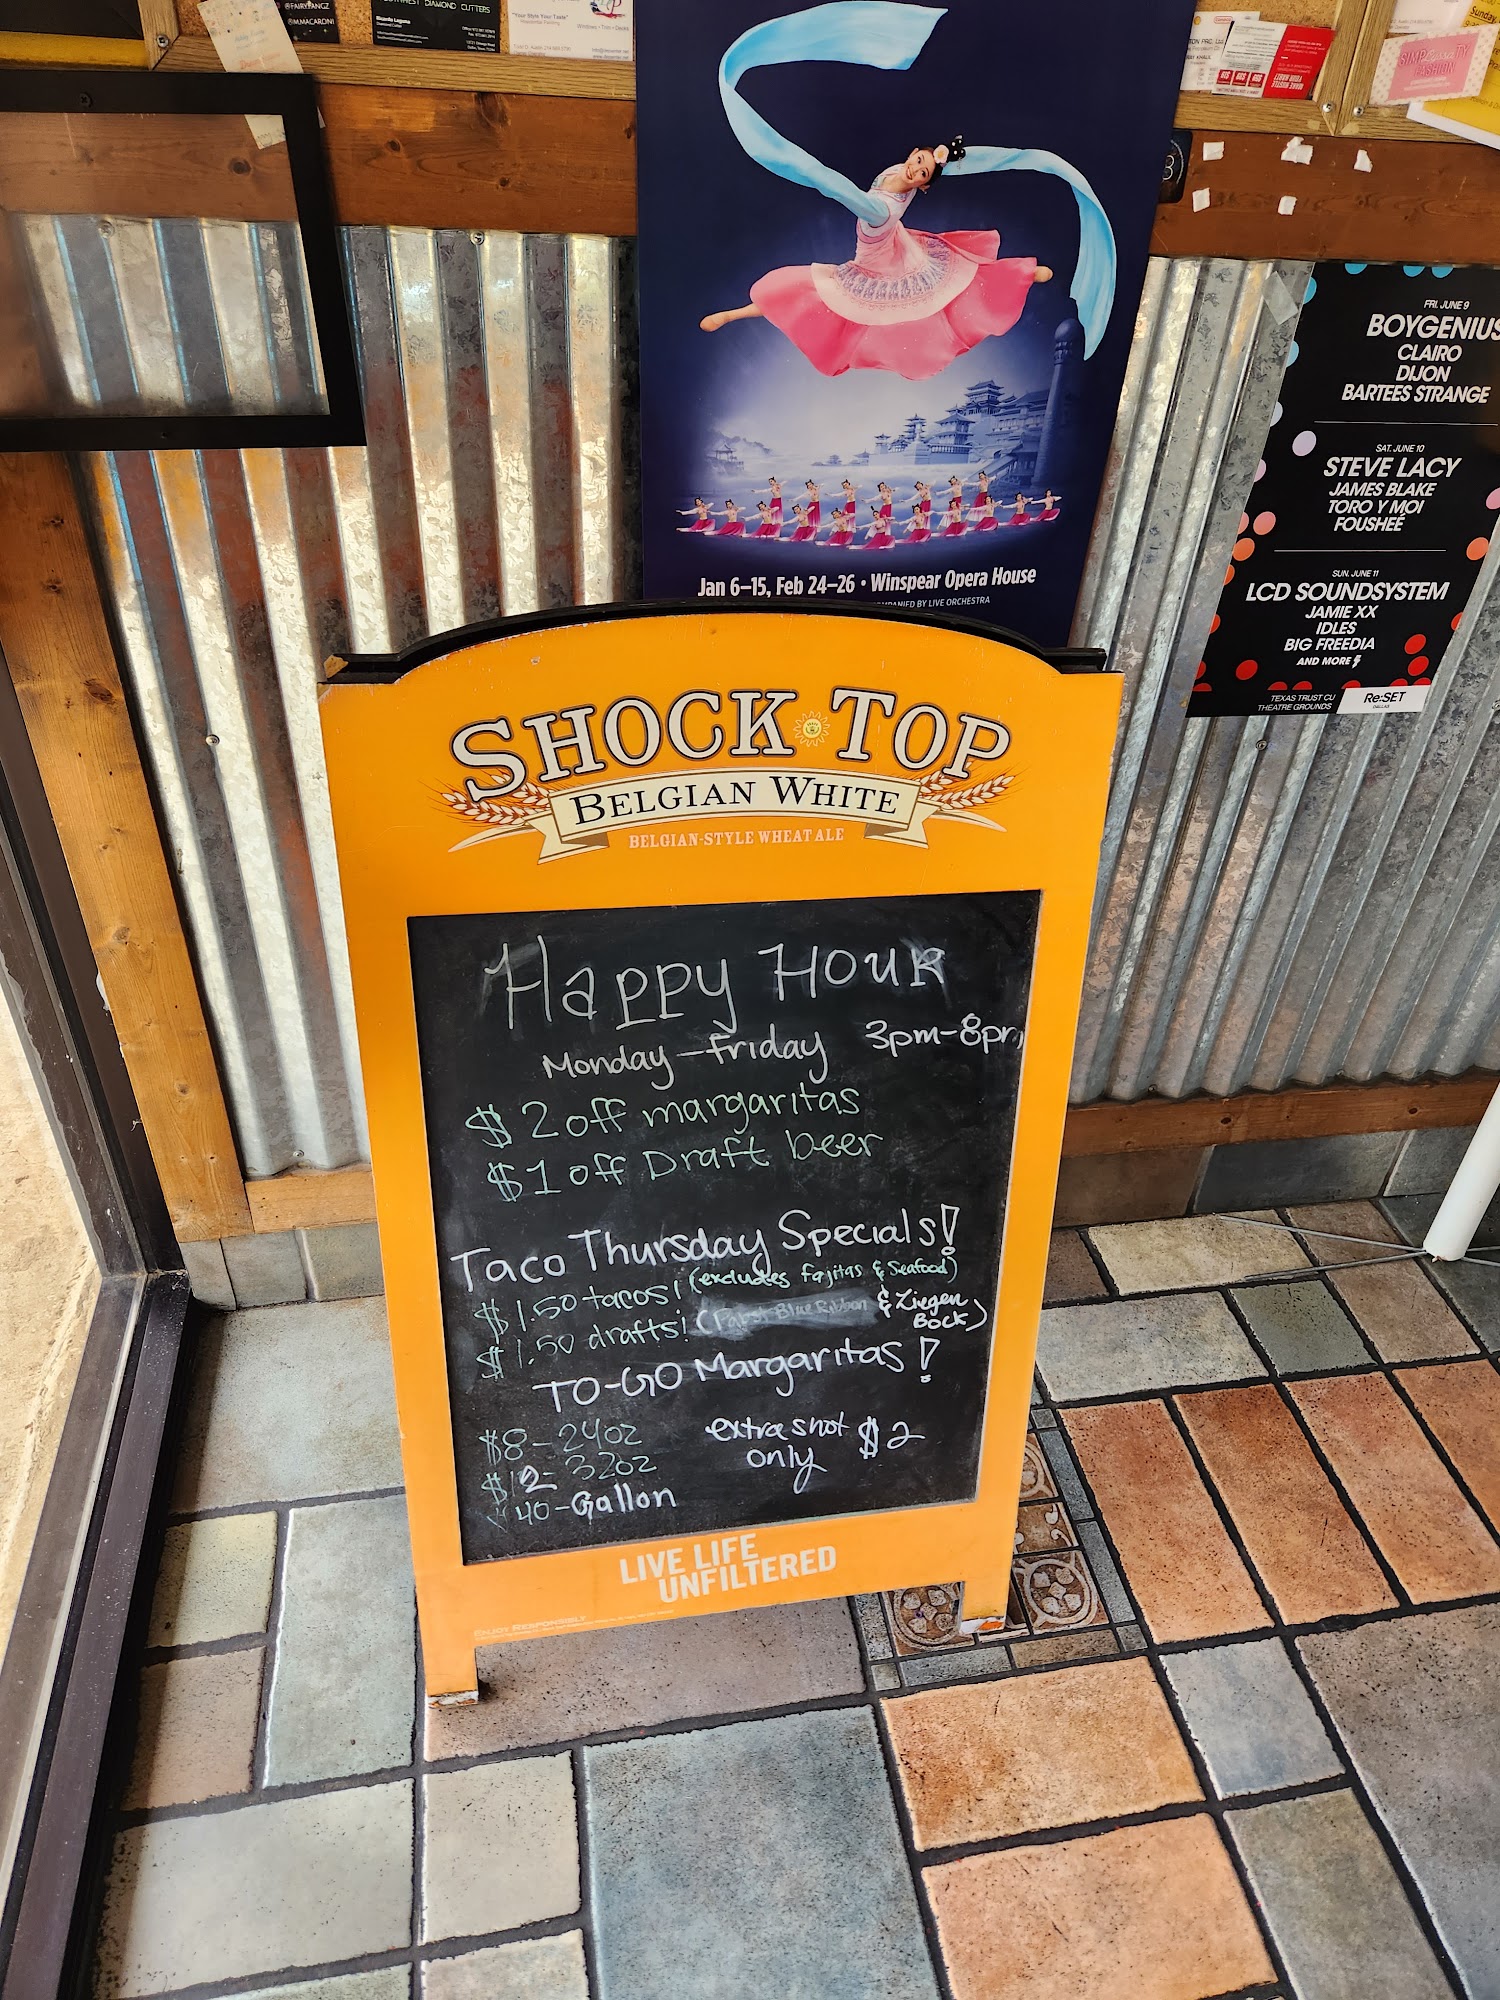 @FAIRYFANGZ
@M.MACARONI
DIAMOND CUTTERS
"Your Style Your Taste"
SIMP
FASHION
Sunday
Jan 6–15, Feb 24–26 • Winspear Opera House
ACCOMPANIED BY LIVE ORCHESTRA
FRI. JUNE 9
BOYGENIUS
CLAIRO
DIJON
BARTEES STRANGE
SAT. JUNE 10
STEVE LACY
JAMES BLAKE
TORO Y MOI
FOUSHEÉ
SUN. JUNE 11
LCD SOUNDSYSTEM
JAMIE XX
IDLES
BIG FREEDIA
AND MORE
TEXAS TRUST CU
THEATRE GROUNDS
Re:SET
DALLAS
SHOCK TOP
BELGIAN WHITE
BELGIAN-STYLE WHEAT ALE
Happy Hour
Monday-Friday 3pm-8pm
$2 off margaritas
$1 off Draft beer
Taco Thursday Specials!
$1.50 tacos! (excludes fajitas & Seafood)
$1.50 drafts! (Pabst Blue Ribbon & Ziegen Bock)
TO-GO Margaritas!
$8-24oz
$12-32oz
$40-Gallon
extra shot $2
only
LIVE LIFE
UNFILTERED
ENJOY RESPONSIBLY